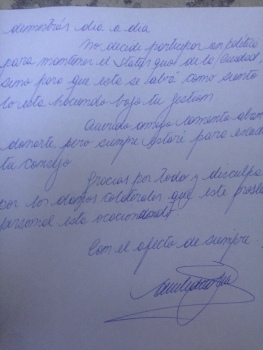 demostrás dia a dia
No decidí participar en política
para mantener el status quo de la Ciudad,
sino para que esta se abra como siento
lo está haciendo bajo tu gestión
Querido amigo lamento aban
donarte pero siempre estaré para
tu consejo
Gracias por todo y disculpa
por los daños colaterales que este
personal está ocasionando
Con el afecto de siempre